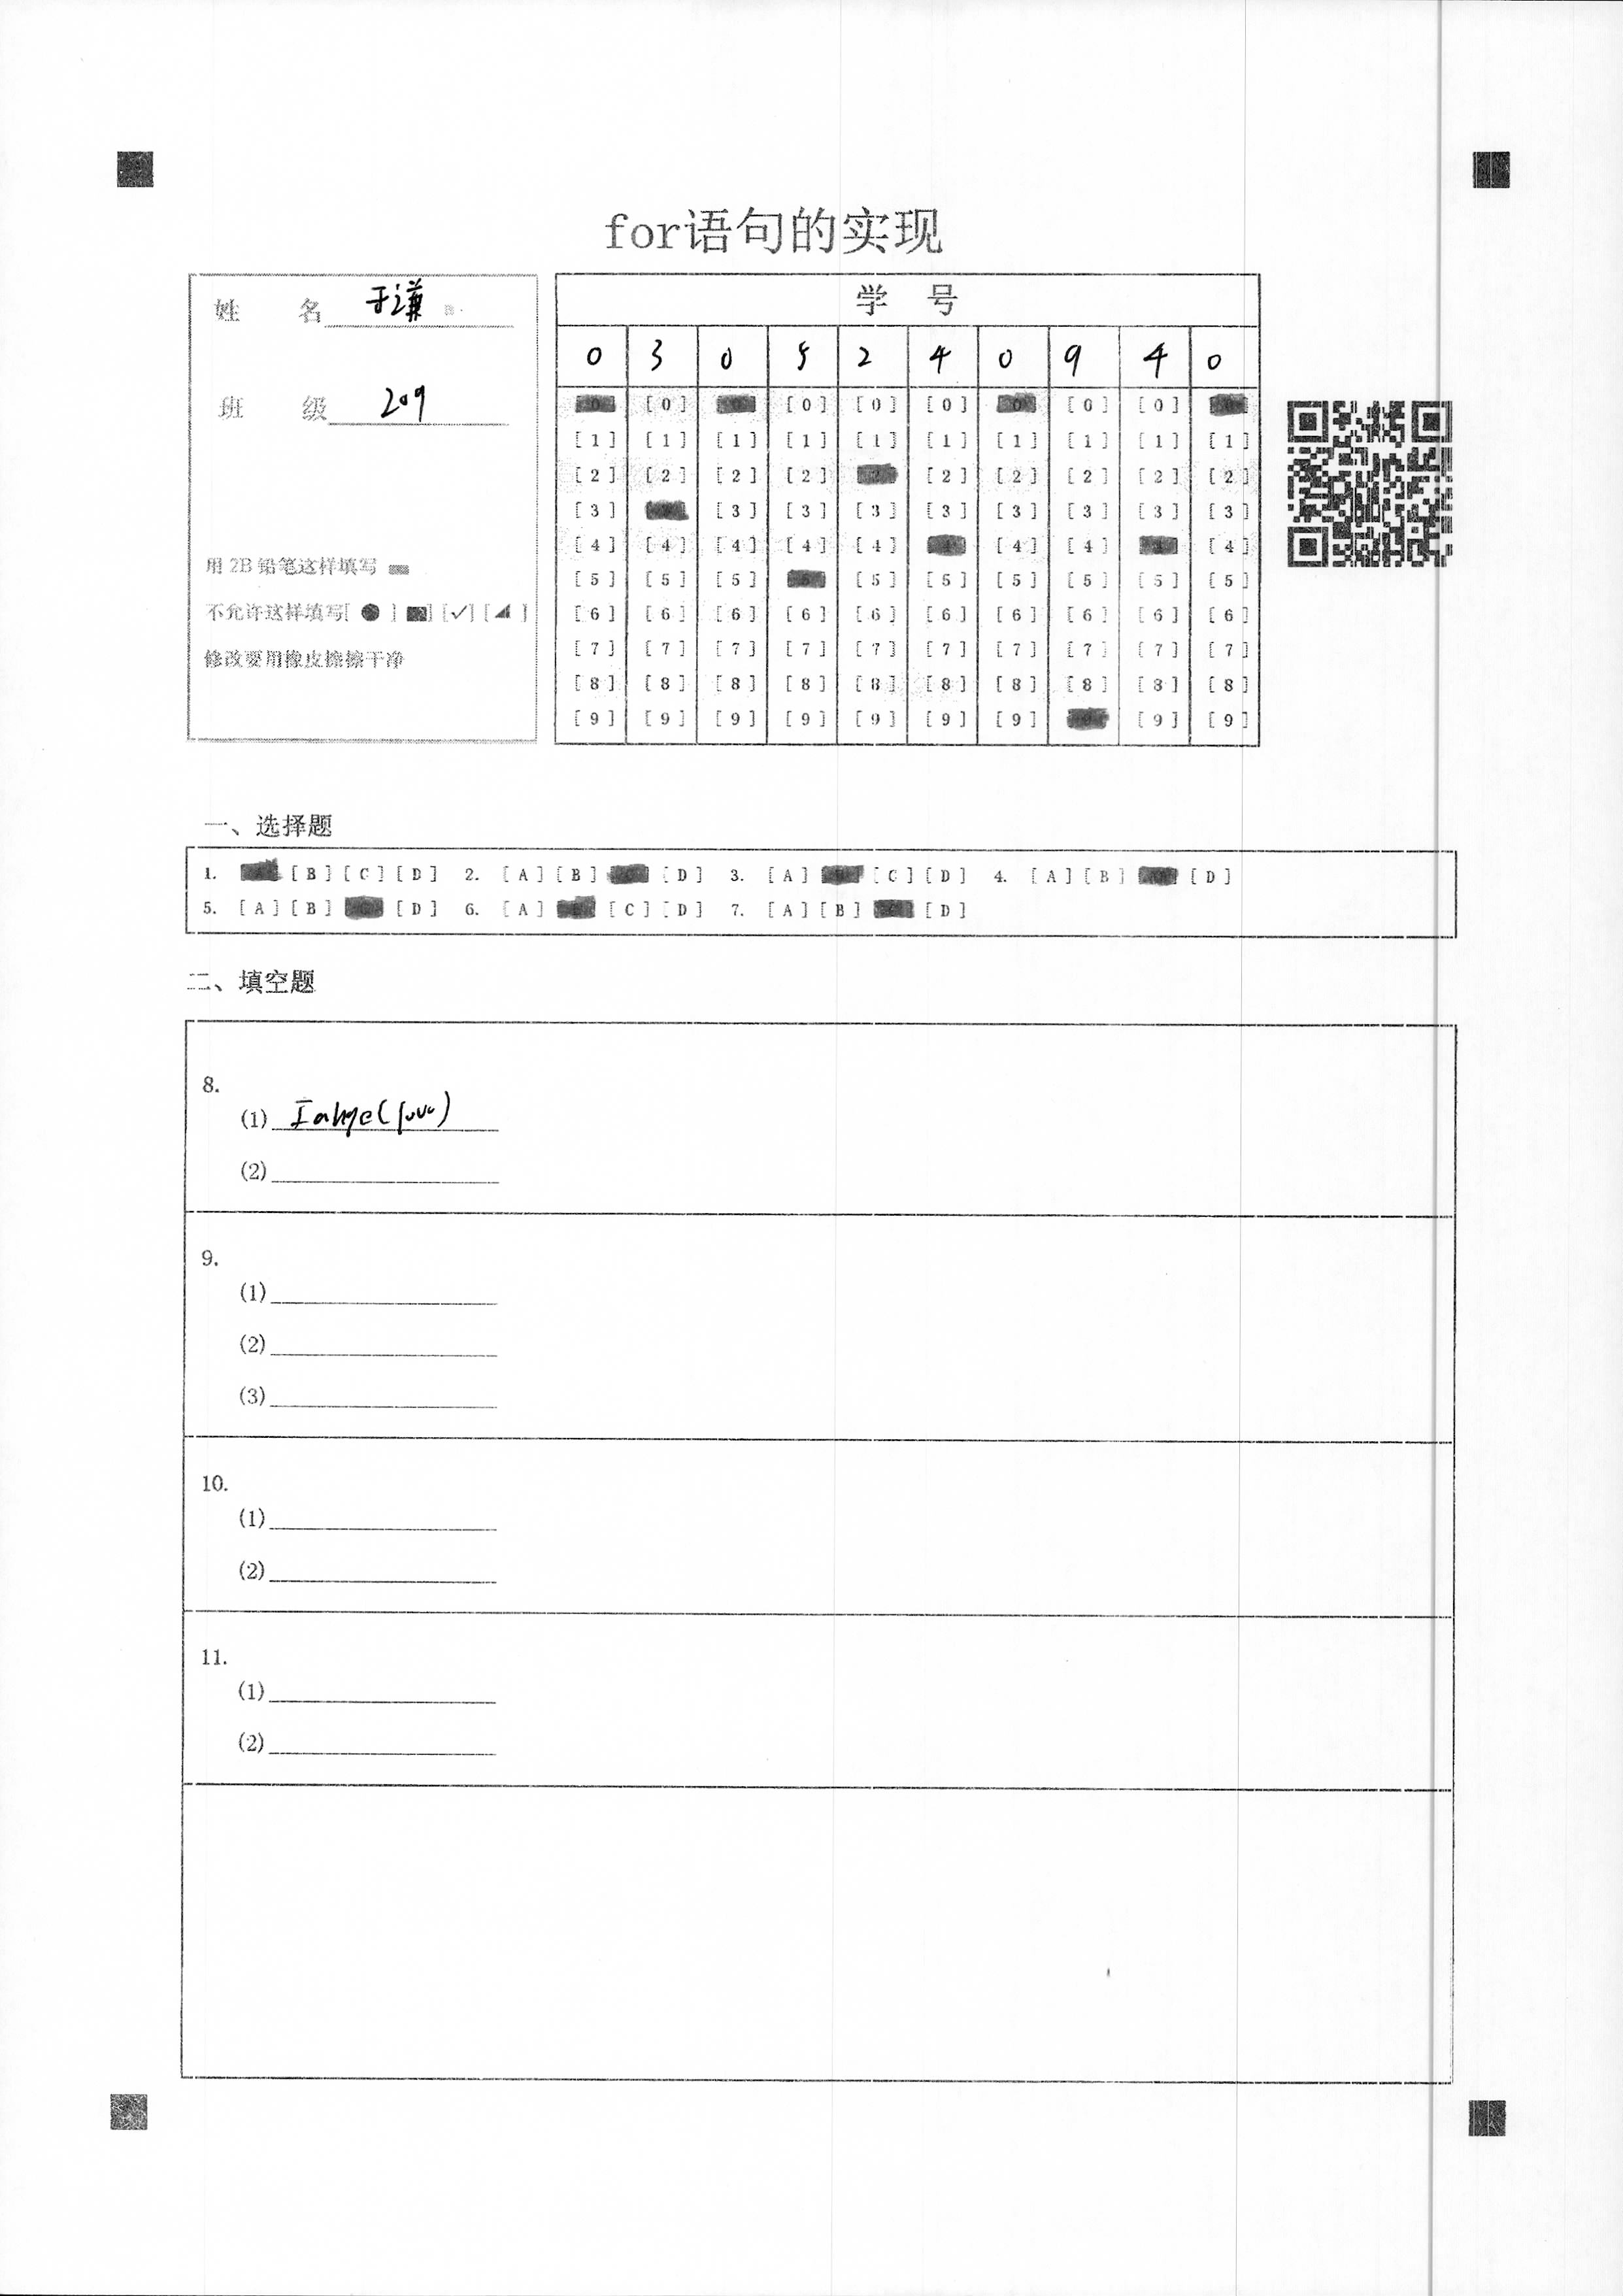 for语句的实现
姓 名 于谦
班 级 209
用 2B 铅笔这样填写
不允许这样填写[ ● ] [■] [✓] [◢ ]
修改要用橡皮擦擦干净
学 号
0 3 0 5 2 4 0 9 4 0
[0] [0] [0] [0] [0] [0] [0]
[1] [1] [1] [1] [1] [1] [1] [1] [1] [1]
[2] [2] [2] [2] [2] [2] [2] [2] [2]
[3] [3] [3] [3] [3] [3] [3] [3] [3]
[4] [4] [4] [4] [4] [4] [4] [4]
[5] [5] [5] [5] [5] [5] [5] [5] [5]
[6] [6] [6] [6] [6] [6] [6] [6] [6] [6]
[7] [7] [7] [7] [7] [7] [7] [7] [7] [7]
[8] [8] [8] [8] [8] [8] [8] [8] [8] [8]
[9] [9] [9] [9] [9] [9] [9] [9] [9]
一、选择题
1. [B] [C] [D] 2. [A] [B] [D] 3. [A] [C] [D] 4. [A] [B] [D]
5. [A] [B] [D] 6. [A] [C] [D] 7. [A] [B] [D]
二、填空题
8.
(1)
(2)
9.
(1)
(2)
(3)
10.
(1)
(2)
11.
(1)
(2)